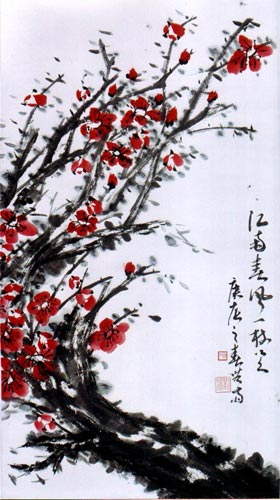 江南春风一枝笑
庚辰之春